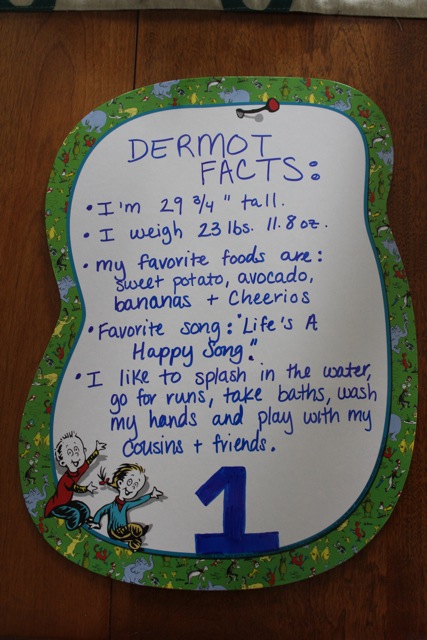 DERMOT
FACTS:
• I'm 29 3/4" tall.
• I weigh 23 lbs. 11.8 oz.
• my favorite foods are:
sweet potato, avocado,
bananas + Cheerios
• Favorite song: "Life's A
Happy Song".
• I like to splash in the water,
go for runs, take baths, wash
my hands and play with my
cousins + friends.
1